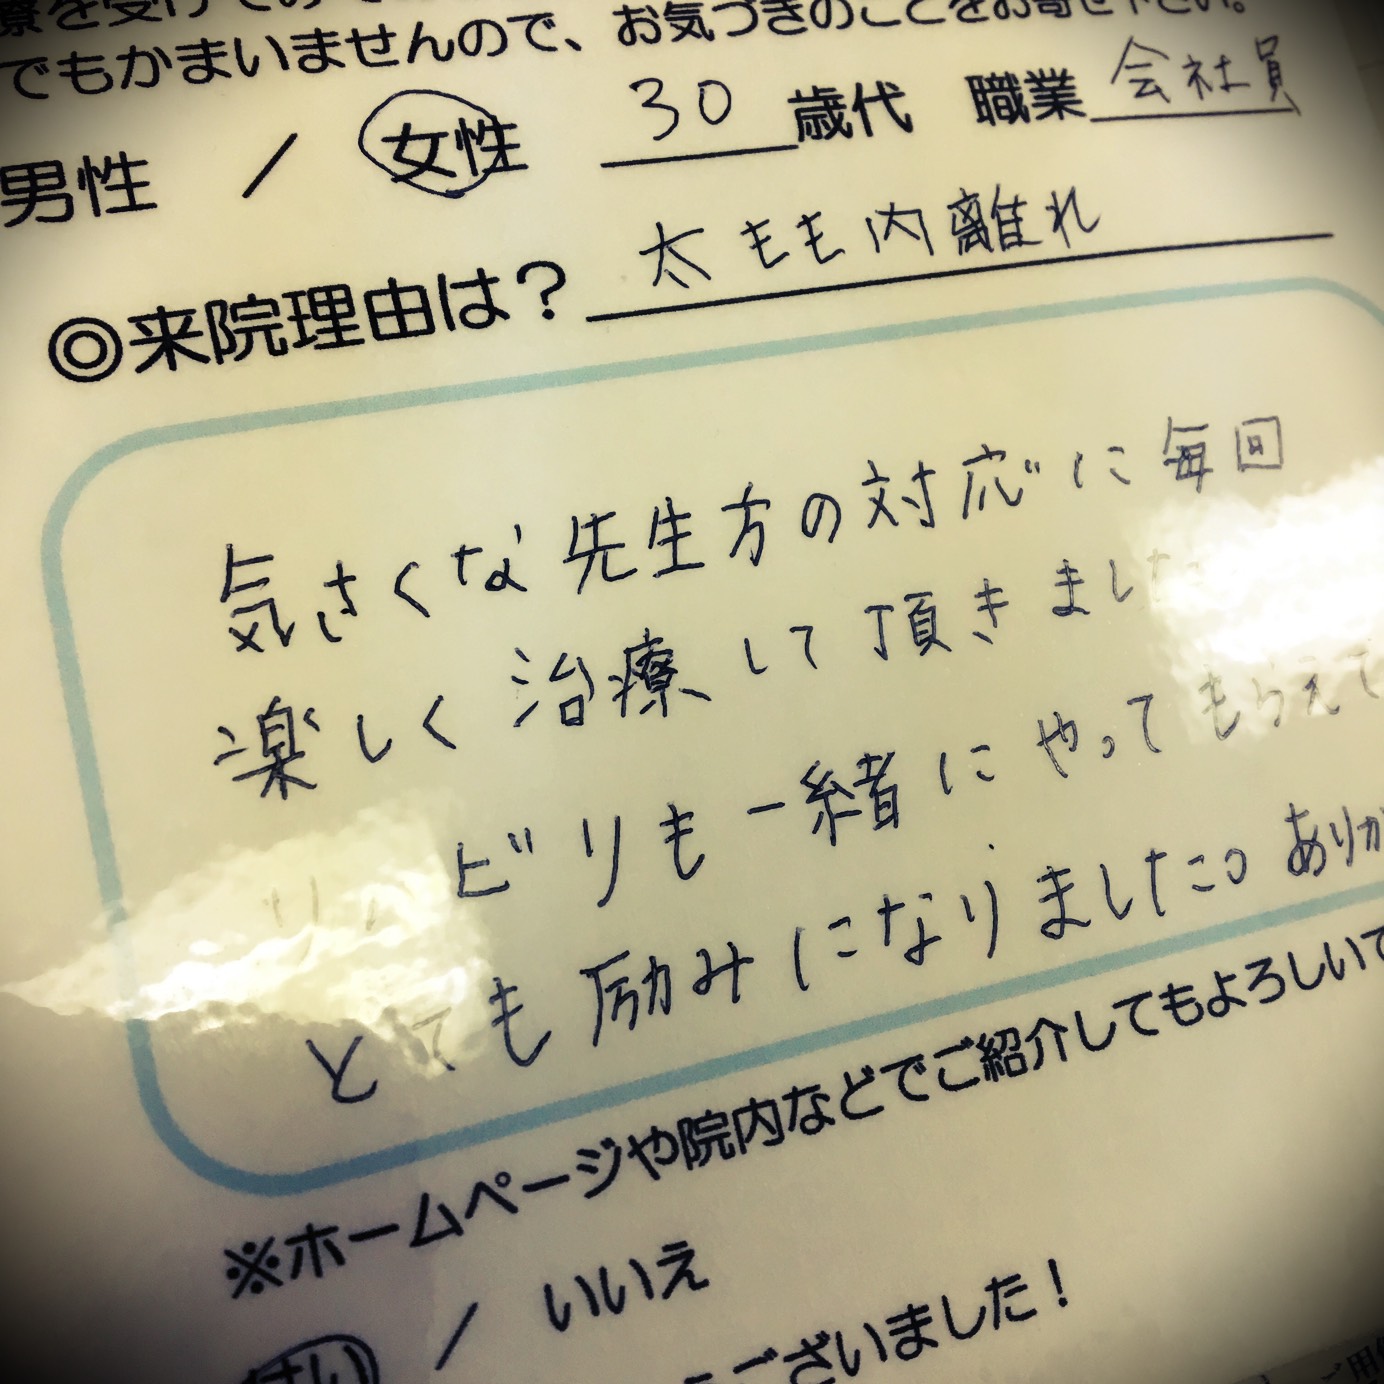 療を受けてみて
でもかまいませんので、お気づきのことをお寄せ下さい。
男性 / 女性 30 歳代 職業 会社員
◎来院理由は? 太もも肉離れ
気さくな先生方の対応に毎回
楽しく治療して頂きました
ビリも一緒にやってもらえて
とても励みになりました。ありが
※ホームページや院内などでご紹介してもよろしいで
はい / いいえ
ございました!